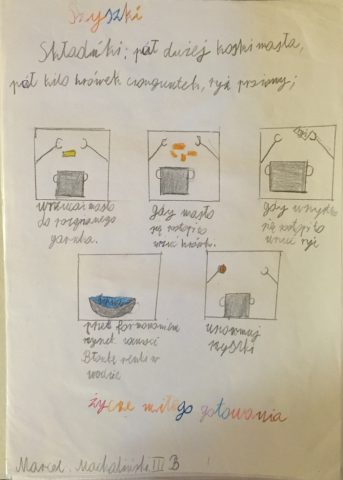 Szyszki
Składniki: pół dużej kostki masła,
pół kilo krówek ciągutek, ryż prażony;
wrzucaj masło
do rozgrzanego
garnka.
gdy masło
się roztopi
wrzuć krówki.
gdy wszystko
się roztopi
wrzuć ryż
przed formowaniem
szyszek zamoczyć
ręke w
wodzie
uformuj
szyszki
życzę miłego gotowania
Marcel Machaliński III B